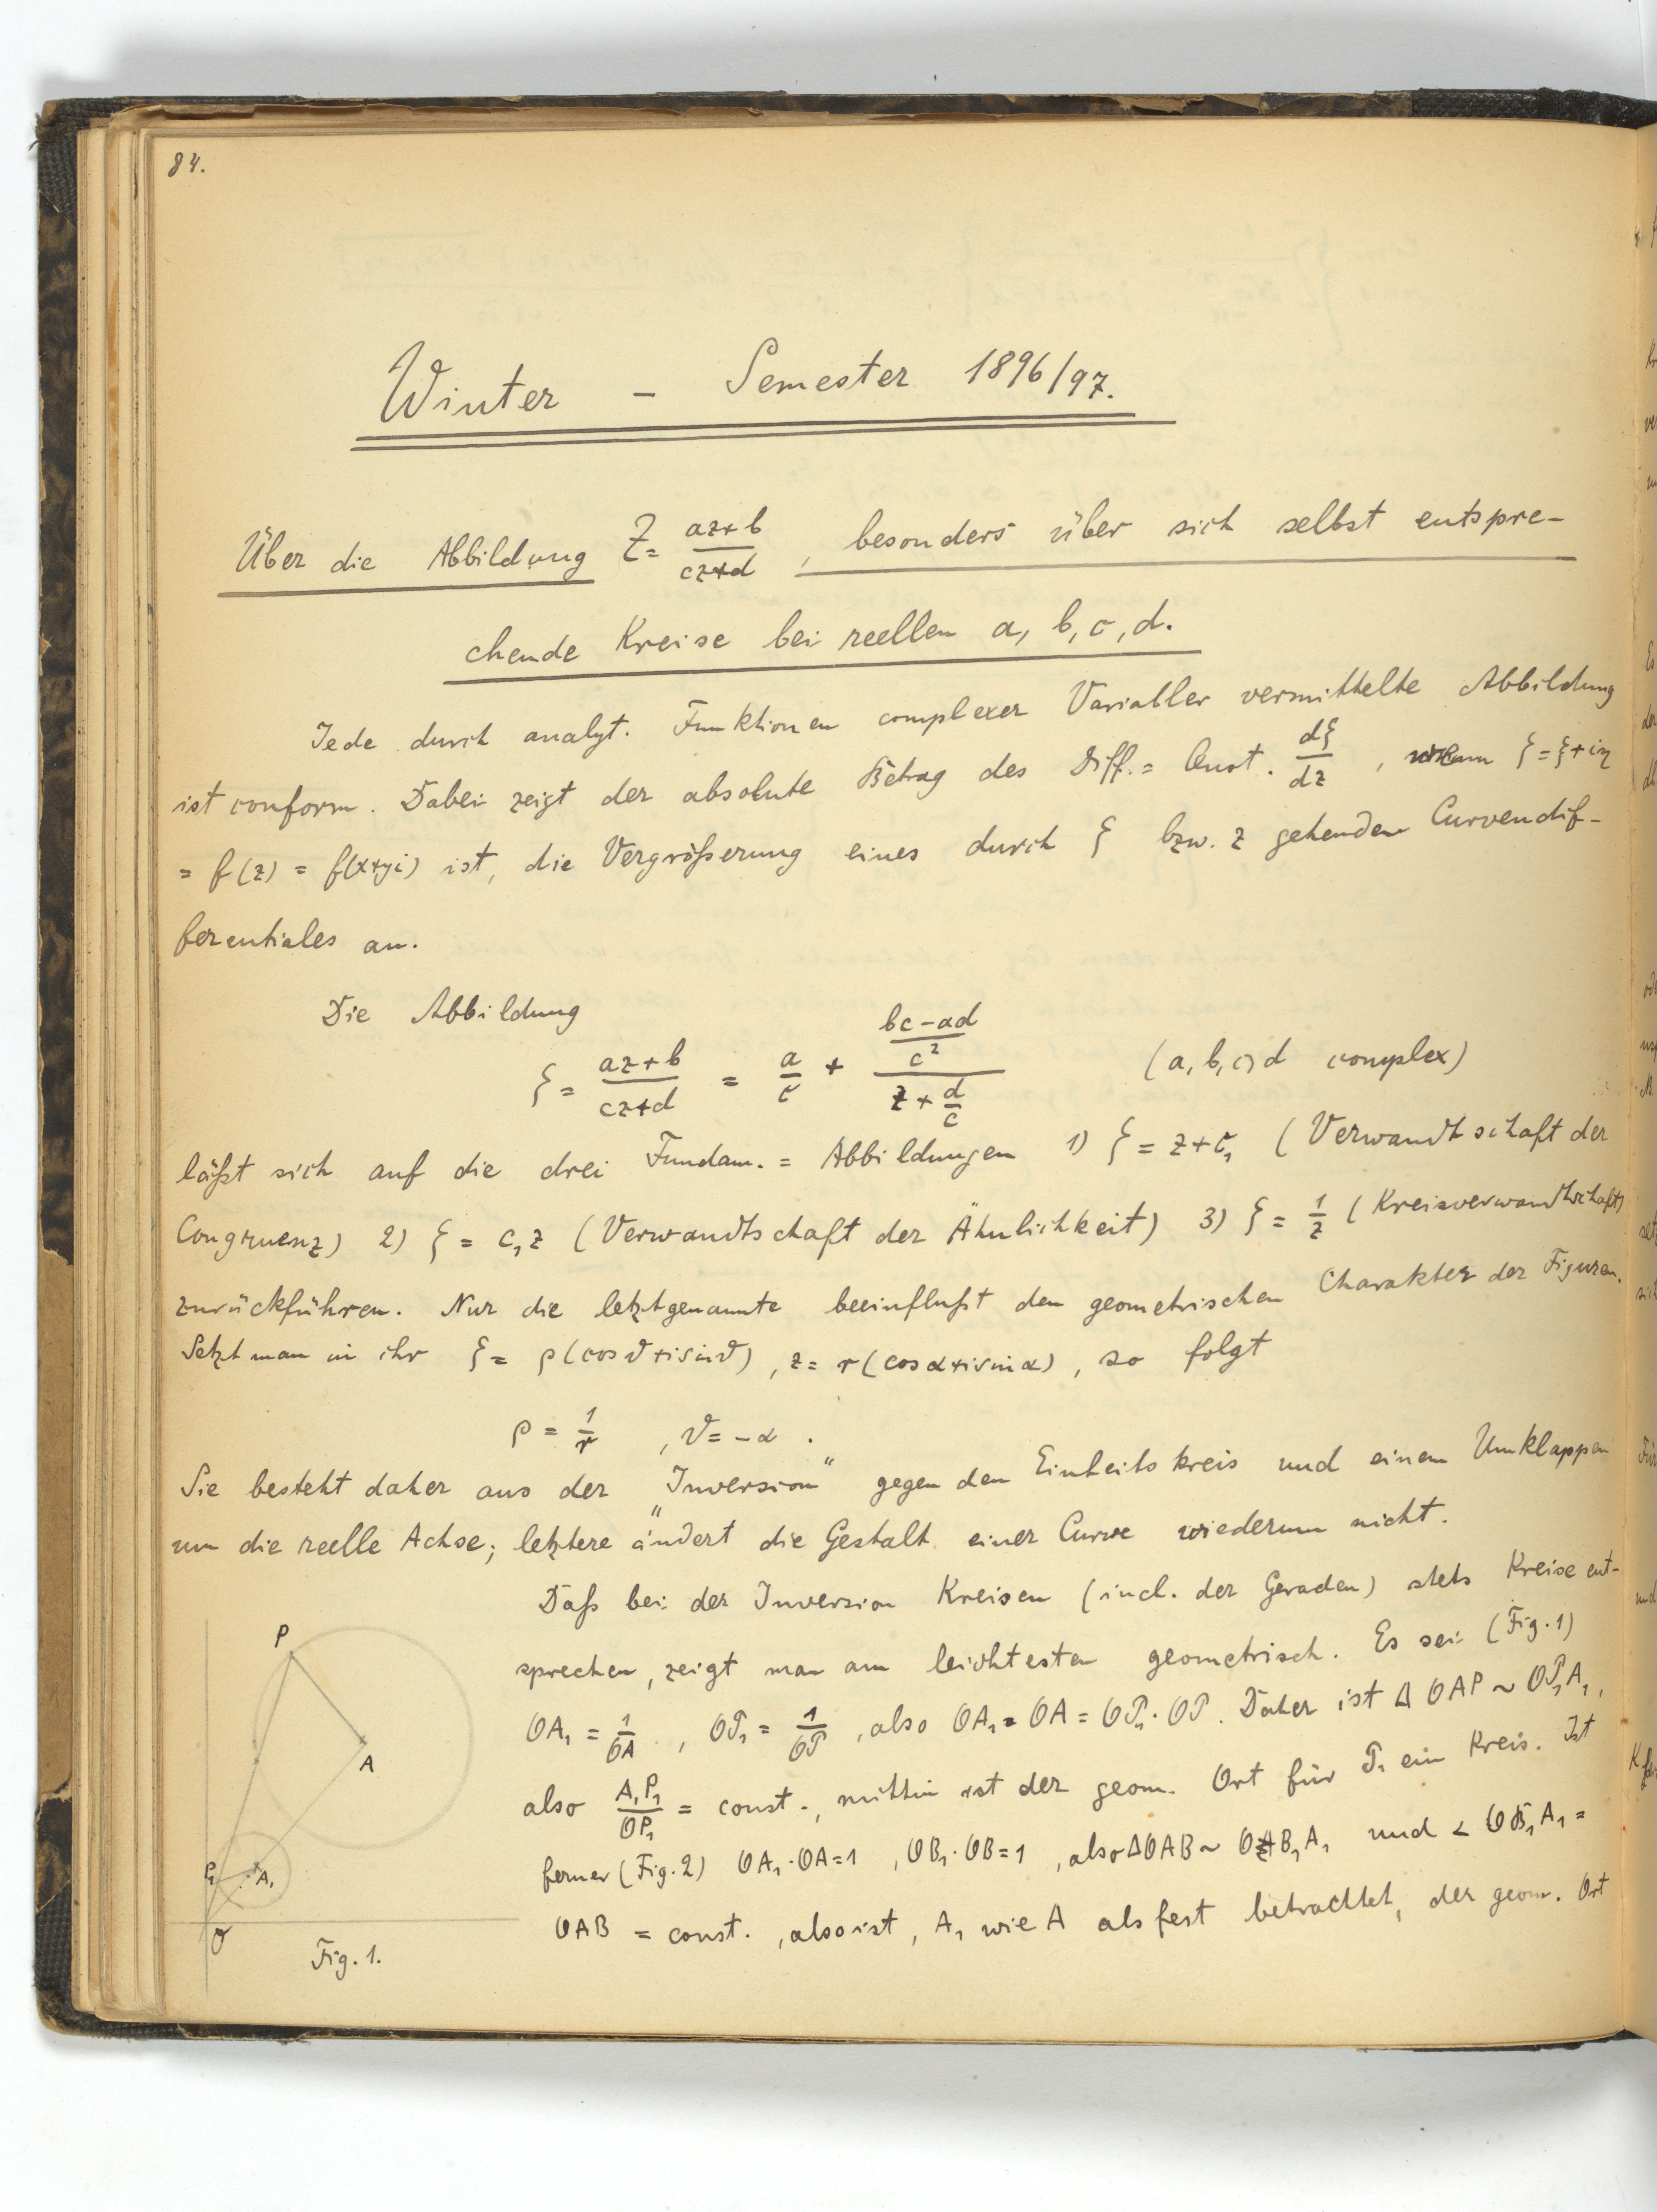 84.
Winter – Semester 1896/97.
Über die Abbildung Z = (az+b)/(cz+d), besonders über sich selbst entspre-
chende Kreise bei reellen a, b, c, d.
Jede durch analyt. Funktionen complexer Variabler vermittelte Abbildung
ist conform. Dabei zeigt der absolute Betrag des Diff.= Quot. dζ/dz, wenn ζ = ξ+iη
= f(z) = f(x+yi) ist, die Vergrößerung eines durch ζ bzw. z gehenden Curvendif-
ferentiales an.
Die Abbildung
ζ = (az+b)/(cz+d) = a/c + ((bc-ad)/c²)/(z+d/c) (a, b, c, d complex)
läßt sich auf die drei Fundam.= Abbildungen 1) ζ = z+c₁ (Verwandtschaft der
Congruenz) 2) ζ = c₁z (Verwandtschaft der Ähnlichkeit) 3) ζ = 1/z (Kreisverwandtschaft)
zurückführen. Nur die letztgenannte beeinflußt den geometrischen Charakter der Figuren.
Setzt man in ihr ζ = ρ(cosϑ+isinϑ), z = r(cosα+isinα), so folgt
ρ = 1/r, ϑ = -α.
Sie besteht daher aus der „Inversion“ gegen den Einheitskreis und einem Umklappen
um die reelle Achse; letztere ändert die Gestalt einer Curve wiederum nicht.
Daß bei der Inversion Kreisen (incl. der Geraden) stets Kreise ent-
sprechen, zeigt man am leichtesten geometrisch. Es sei (Fig. 1)
OA₁ = 1/OA, OP₁ = 1/OP, also OA₁ = OA = OP₁·OP. Daher ist Δ OAP ~ OP₁A₁,
also A₁P₁/OP₁ = const., mithin ist der geom. Ort für P₁ ein Kreis. Ist
ferner (Fig. 2) OA₁·OA=1, OB₁·OB=1, also ΔOAB ~ OB₁A₁ und ∠ OB₁A₁ =
OAB = const., also ist, A₁ wie A als fest betrachtet, der geom. Ort
P
A
P₁
A₁
O
Fig. 1.